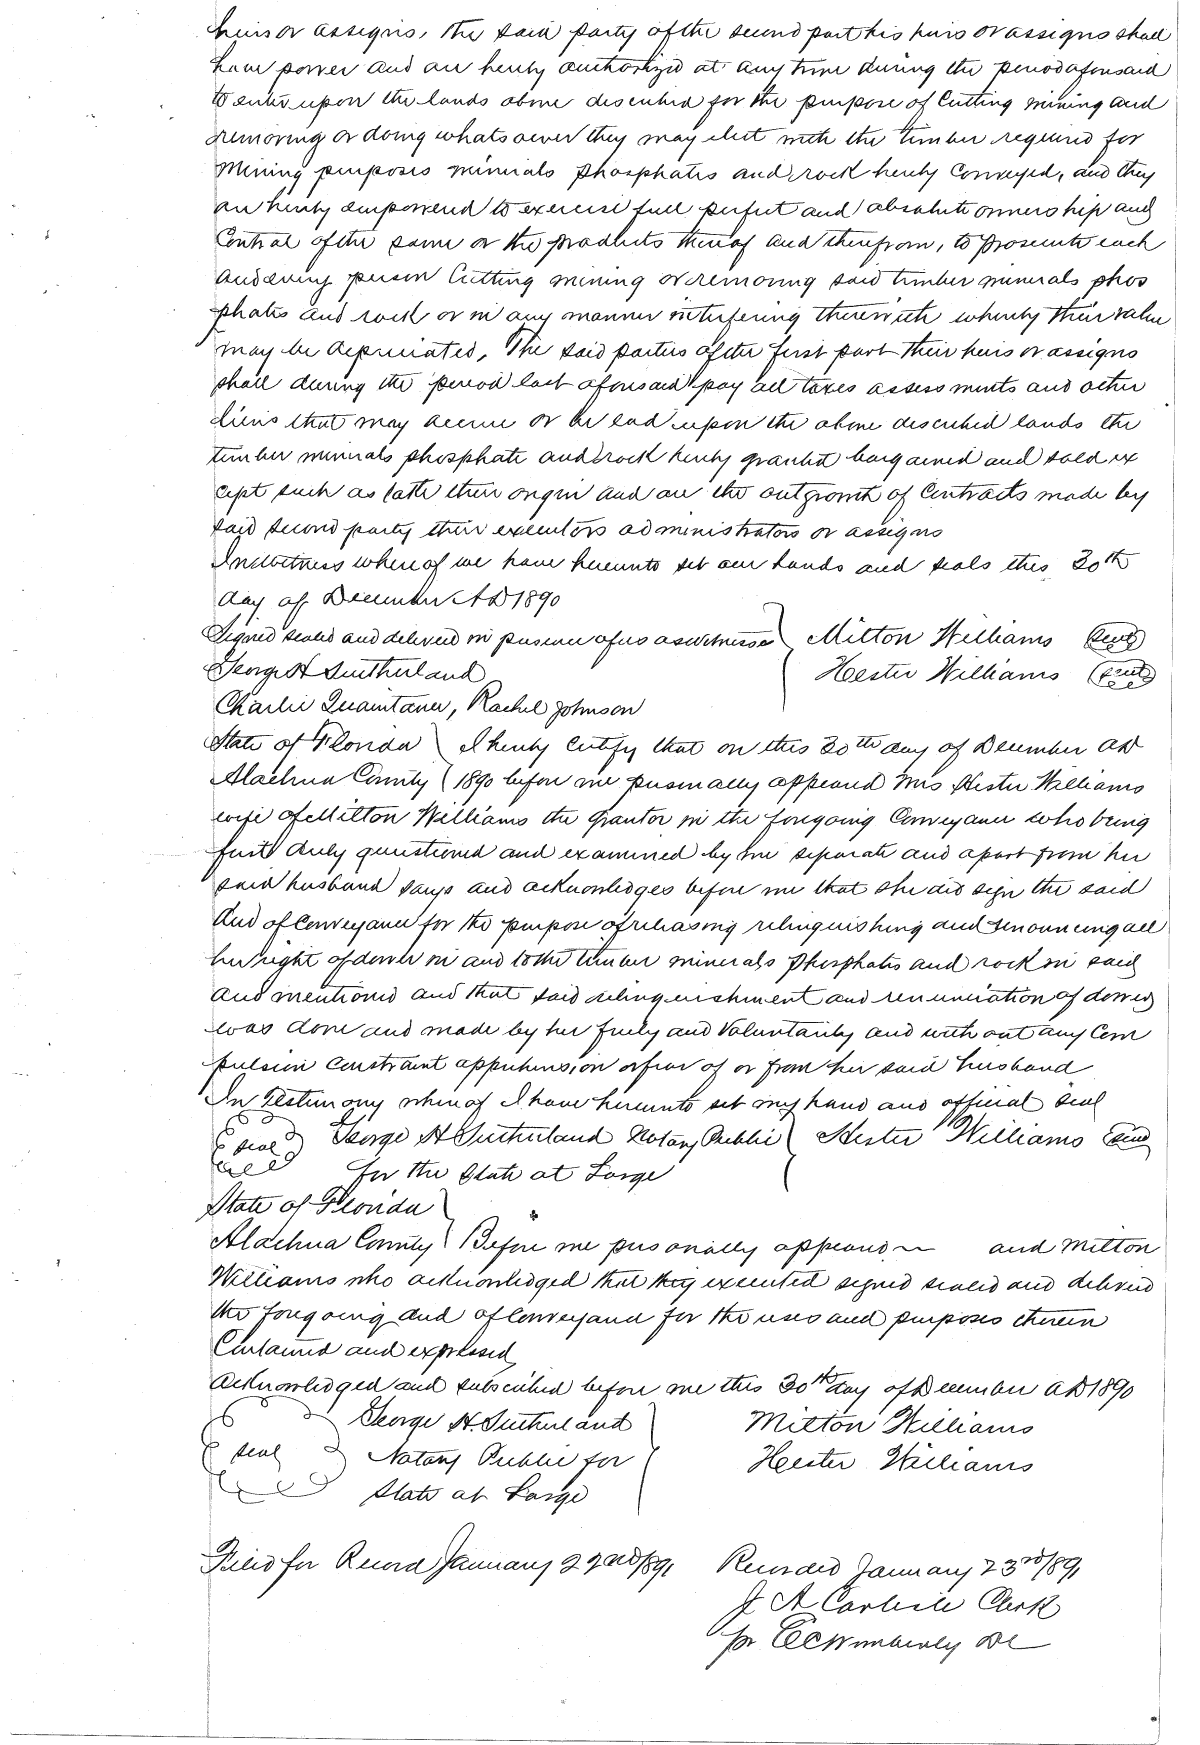 heirs or assigns, the said party of the second part his heirs or assigns shall
have power and are hereby authorized at any time during the period aforesaid
to enter upon the lands above described for the purpose of Cutting mining and
removing or doing whatsoever they may elect with the timber required for
Mining purposes minerals phosphates and rock hereby Conveyed, and they
are hereby empowered to exercise full perfect and absolute ownership and
Control of the same or the products thereof and therefrom, to prosecute each
and every person Cutting mining or removing said timber minerals phos
phates and rock or in any manner interfering therewith whereby their value
may be depreciated, The said parties of the first part their heirs or assigns
shall during the period last aforesaid pay all taxes assessments and other
liens that may accrue or be laid upon the above described lands the
timber minerals phosphate and rock hereby granted bargained and sold ex
cept such as take their origin and are the outgrowth of Contracts made by
said second party their executors administrators or assigns
In witness where of we have hereunto set our hands and seals this 30th
day of December AD 1890
Signed sealed and delivered in presence of us as witnesses Milton Williams (seal)
George H Sutherland Hester Williams (seal)
Charlie Quaintance, Rachel Johnson
State of Florida I hereby Certify that on this 30th day of December AD
Alachua County 1890 before me personally appeared Mrs Hester Williams
wife of Milton Williams the Grantor in the foregoing Conveyance who being
first duly questioned and examined by me separate and apart from her
said husband says and acknowledges before me that she did sign the said
deed of Conveyance for the purpose of releasing relinquishing and renouncing all
her right of dower in and to the timber minerals phosphates and rock in said
deed mentioned and that said relinquishment and renunciation of dower
was done and made by her freely and Voluntarily and with out any Com
pulsion constraint apprehension or fear of or from her said husband
In Testimony where of I have hereunto set my hand and official seal
seal George H Sutherland Notary Public Hester Williams seal
for the State at Large
State of Florida
Alachua County Before me personally appeared and Milton
Williams who acknowledged that they executed signed sealed and delivered
the foregoing deed of Conveyance for the uses and purposes therein
Contained and expressed
Acknowledged and subscribed before me this 30th day of December AD 1890
George H. Sutherland Milton Williams
seal Notary Public for Hester Williams
State at Large
Filed for Record January 22nd/891 Recorded January 23rd/891
J A Carlisle Clerk
pr C C Wimberly DC